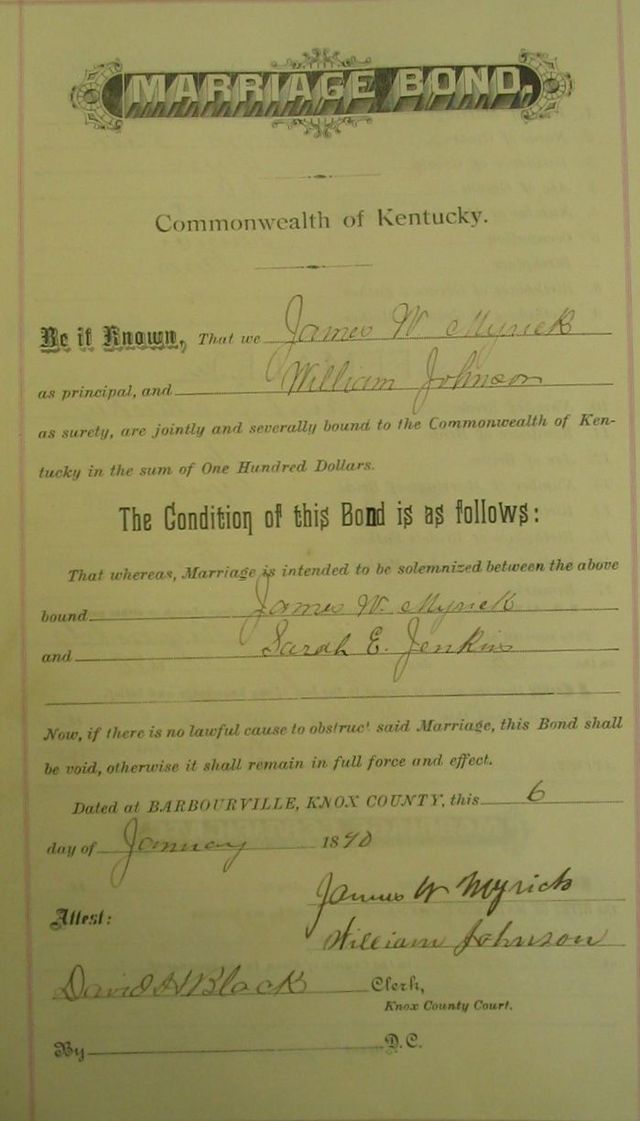 MARRIAGE BOND.
Commonwealth of Kentucky.
Be it Known, That we James W Myrick
as principal, and William Johnson
as surety, are jointly and severally bound to the Commonwealth of Ken-
tucky in the sum of One Hundred Dollars.
The Condition of this Bond is as follows:
That whereas, Marriage is intended to be solemnized between the above
bound James W. Myrick
and Sarah E. Jenkins
Now, if there is no lawful cause to obstruct said Marriage, this Bond shall
be void, otherwise it shall remain in full force and effect.
Dated at BARBOURVILLE, KNOX COUNTY, this 6
day of January 1890
James W Myrick
Attest:
William Johnson
David H Black Clerk,
Knox County Court.
By D.C.